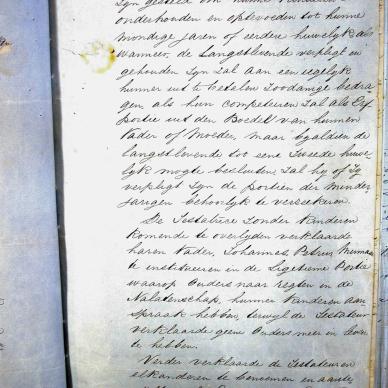 zyn gesteld om hunne kinderen
onderhouden en optevoeden tot hunne
mondige jaren of eerdere huwelyk als
wanneer de Langstlevende verpligt en
gehouden zyn zal aan een iegelyk
hunner uit te betalen zoodanige bedra-
gen, als hun competeeren zal als Erf
portie uit den Boedel van hunnen
Vader of Moeder, maar byaldien de
langstlevende tot eene tweede huwe-
lyk mogte besluiten zal hy of Zy
verpligt zyn de portien der minder
jarigen behoorlyk te verzekeren.
De Testatrice zonder kinderen
komende te overlyden verklaarde
haren Vader, Johannes Petrus
te institueeren in de Legitieme Portie
waarop Ouders naar regten in de
Nalatenschap hunner Kinderen aan
spraak hebben, terwyl de Testateur
verklaarde geene Ouders meer in leven
te hebben.
Verder verklaarde de Testateuren
elkanderen te benoemen en aante